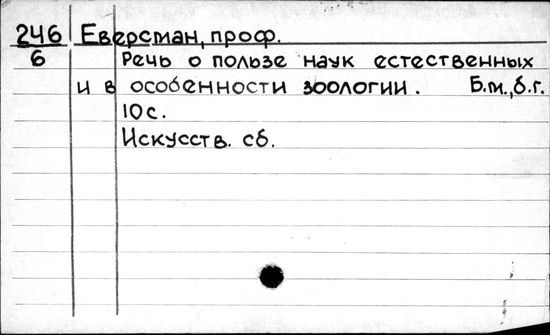 246 Еверсман, проф.
6 Речь о пользе наук естественных
и в особенности зоологии. Б.м., б.г.
10 с.
Искусств. сб.